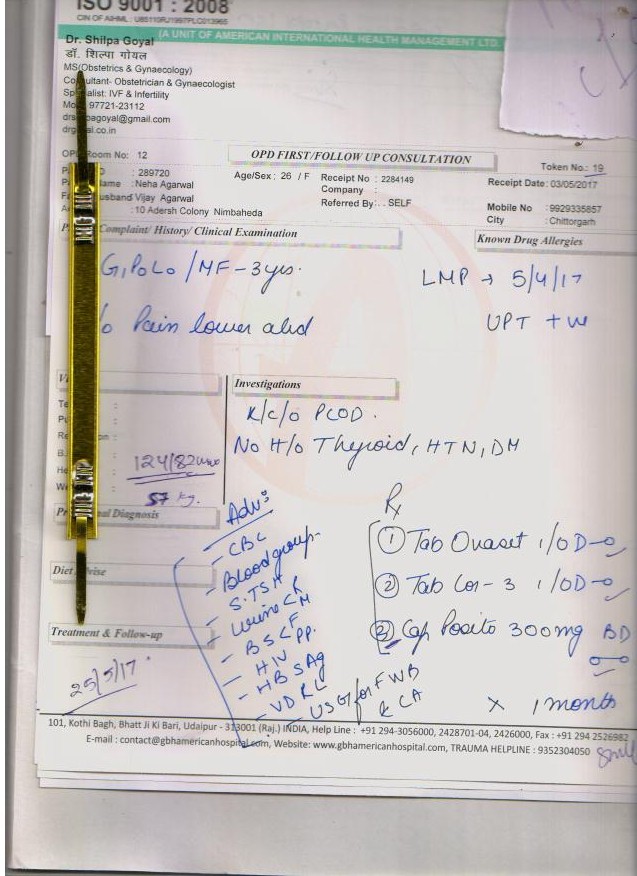 ISO 9001 : 2008
CIN OF AIHML : U85110RJ1997PLC013965
(A UNIT OF AMERICAN INTERNATIONAL HEALTH MANAGEMENT LTD.
Dr. Shilpa Goyal
डॉ. शिल्पा गोयल
MS(Obstetrics & Gynaecology)
Consultant- Obstetrician & Gynaecologist
Specialist: IVF & Infertility
97721-23112
pagoyal@gmail.com
al.co.in
OPD Room No: 12
OPD FIRST/FOLLOW UP CONSULTATION
Token No.: 19
: 289720
Age/Sex : 26 / F
Receipt No : 2284149
Receipt Date: 03/05/2017
Name : Neha Agarwal
Company :
usband Vijay Agarwal
Referred By: . SELF
Mobile No : 9929335857
: 10 Adersh Colony Nimbaheda
City : Chittorgarh
Complaint/ History/ Clinical Examination
Known Drug Allergies
G1P0L0 / MF - 3yrs.
LMP → 5/4/17
Pain lower abd
UPT +ve
Investigations
K/c/o PCOD.
No H/o Thyroid, HTN, DM
124/82
57 kg.
Diagnosis
Adv:
- CBC
- Blood group
- S.TSH
- Urine C R M
- BS F PP.
- HIV
- HBSAg
- VDRL
- USG for FWB & CA
Rx
① Tab Ovaset 1/OD
② Tab Cor-3 1/OD
③ Cap Posito 300mg BD
x 1 month
Treatment & Follow-up
25/5/17.
101, Kothi Bagh, Bhatt Ji Ki Bari, Udaipur - 313001 (Raj.) INDIA, Help Line : +91 294-3056000, 2428701-04, 2426000, Fax : +91 294 2526982
E-mail : contact@gbhamericanhospital.com, Website: www.gbhamericanhospital.com, TRAUMA HELPLINE : 9352304050